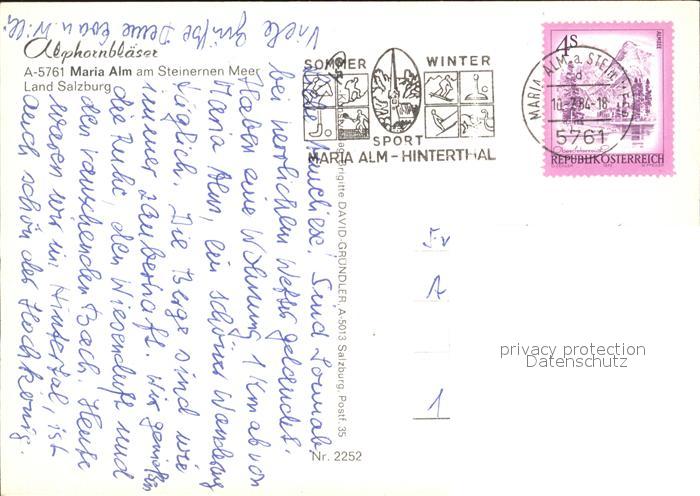 Alphornbläser
A-5761 Maria Alm am Steinernen Meer
Land Salzburg
SOMMER WINTER
SPORT
MARIA ALM - HINTERTHAL
MARIA ALM a. STEIN
10.-7.84-18
5761
4S
ALMSEE
REPUBLIK ÖSTERREICH
Brigitte DAVID-GRÜNDLER, A-5013 Salzburg, Postf. 35
Nr. 2252
! Sind Sonnab.
bei herrlichem Wetter gelandet.
Haben eine Wohnung 1 km ab von
Maria Alm, ein schöner Wanderweg
täglich. Die Berge sind wie
immer zauberhaft. Wir genießen
die Ruhe, den Wiesenduft und
den rauschenden Bach. Heute
waren wir in Hintertal, ist
auch schön der Hochkönig.
Viele Grüße Deine Eva u Willi
Fr
A
1
privacy protection
Datenschutz